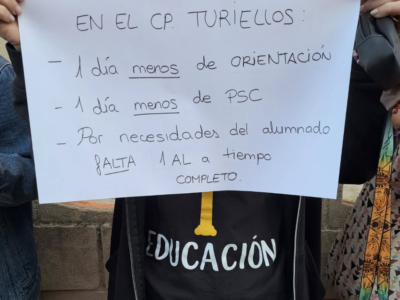 EN EL CP. TURIELLOS:
- 1 día menos de ORIENTACIÓN
- 1 día menos de PSC
- Por necesidades del alumnado
fALTA 1 AL a tiempo
COMPLETO.
EDUCACIÓN